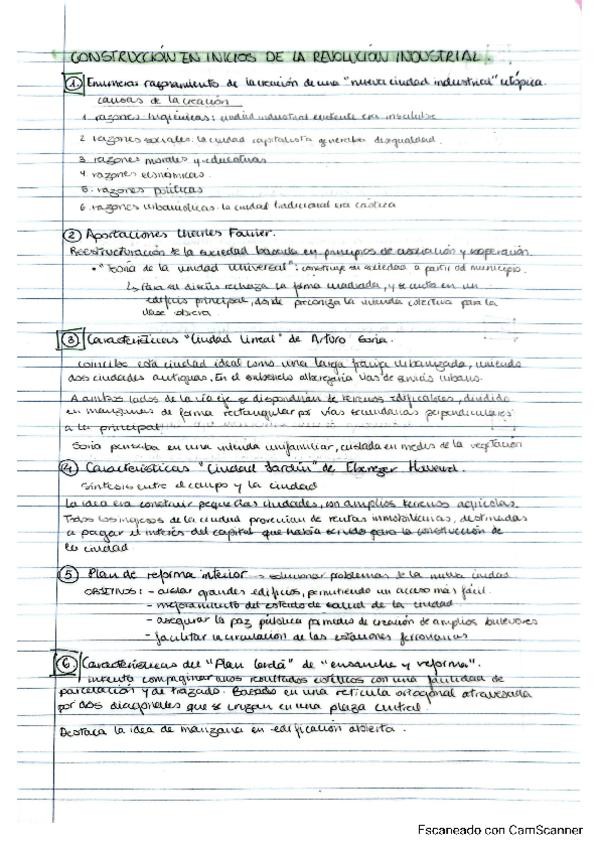 CONSTRUCCIÓN EN INICIOS DE LA REVOLUCIÓN INDUSTRIAL.
1. Enumeras razonamiento de la creación de una "nueva ciudad industrial" utópica.
causas de la creación
1. razones higiénicas: ciudad industrial existente era insalubre
2. razones sociales: la ciudad capitalista generaba desigualdad.
3. razones morales y educativas
4. razones económicas.
5. razones políticas
6. razones urbanísticas: la ciudad tradicional era caótica
2 Aportaciones Charles Fourier.
Reestructuración de la sociedad basada en principios de asociación y cooperación.
• "Teoría de la unidad universal": construye su sociedad a partir del municipio.
↳ Para su diseño rechaza la forma cuadrada, y se centra en un
edificio principal, donde preconiza la vivienda colectiva para la
clase obrera.
3 Características "Ciudad Lineal" de Arturo Soria.
concibe esta ciudad ideal como una larga franja urbanizada, uniendo
dos ciudades antiguas. En el subsuelo albergaría vías de servicio urbano.
A ambos lados de la vía eje se dispondrían de terrenos edificables, dividido
en manzanas de forma rectangular por vías secundarias perpendiculares
a la principal
Soria pensaba en una vivienda unifamiliar, aislada en medio de la vegetación
4 Características "Ciudad Jardín" de Ebenezer Howard.
Síntesis entre el campo y la ciudad
La idea era construir pequeñas ciudades, con amplios terrenos agrícolas.
Todos los ingresos de la ciudad provenían de rentas inmobiliarias, destinadas
a pagar el interés del capital que había servido para la construcción de
la ciudad.
5 Plan de reforma interior → solucionar problemas de la nueva ciudad
OBJETIVOS: - aislar grandes edificios, permitiendo un acceso más fácil.
- mejoramiento del estado de salud de la ciudad
- asegurar la paz pública por medio de creación de amplios bulevares
- facilitar la circulación de las estaciones ferroviarias
6 Características del "Plan Cerdá" de "ensanche y reforma".
intenta compaginar unos resultados estéticos con una facilidad de
parcelación y de trazado. Basado en una retícula ortogonal atravesada
por dos diagonales que se cruzan en una plaza central.
Destaca la idea de manzana en edificación abierta.
Escaneado con CamScanner